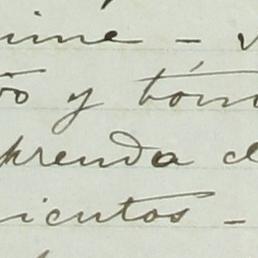 nime - v
ño y tóm
prenda d
ientos -